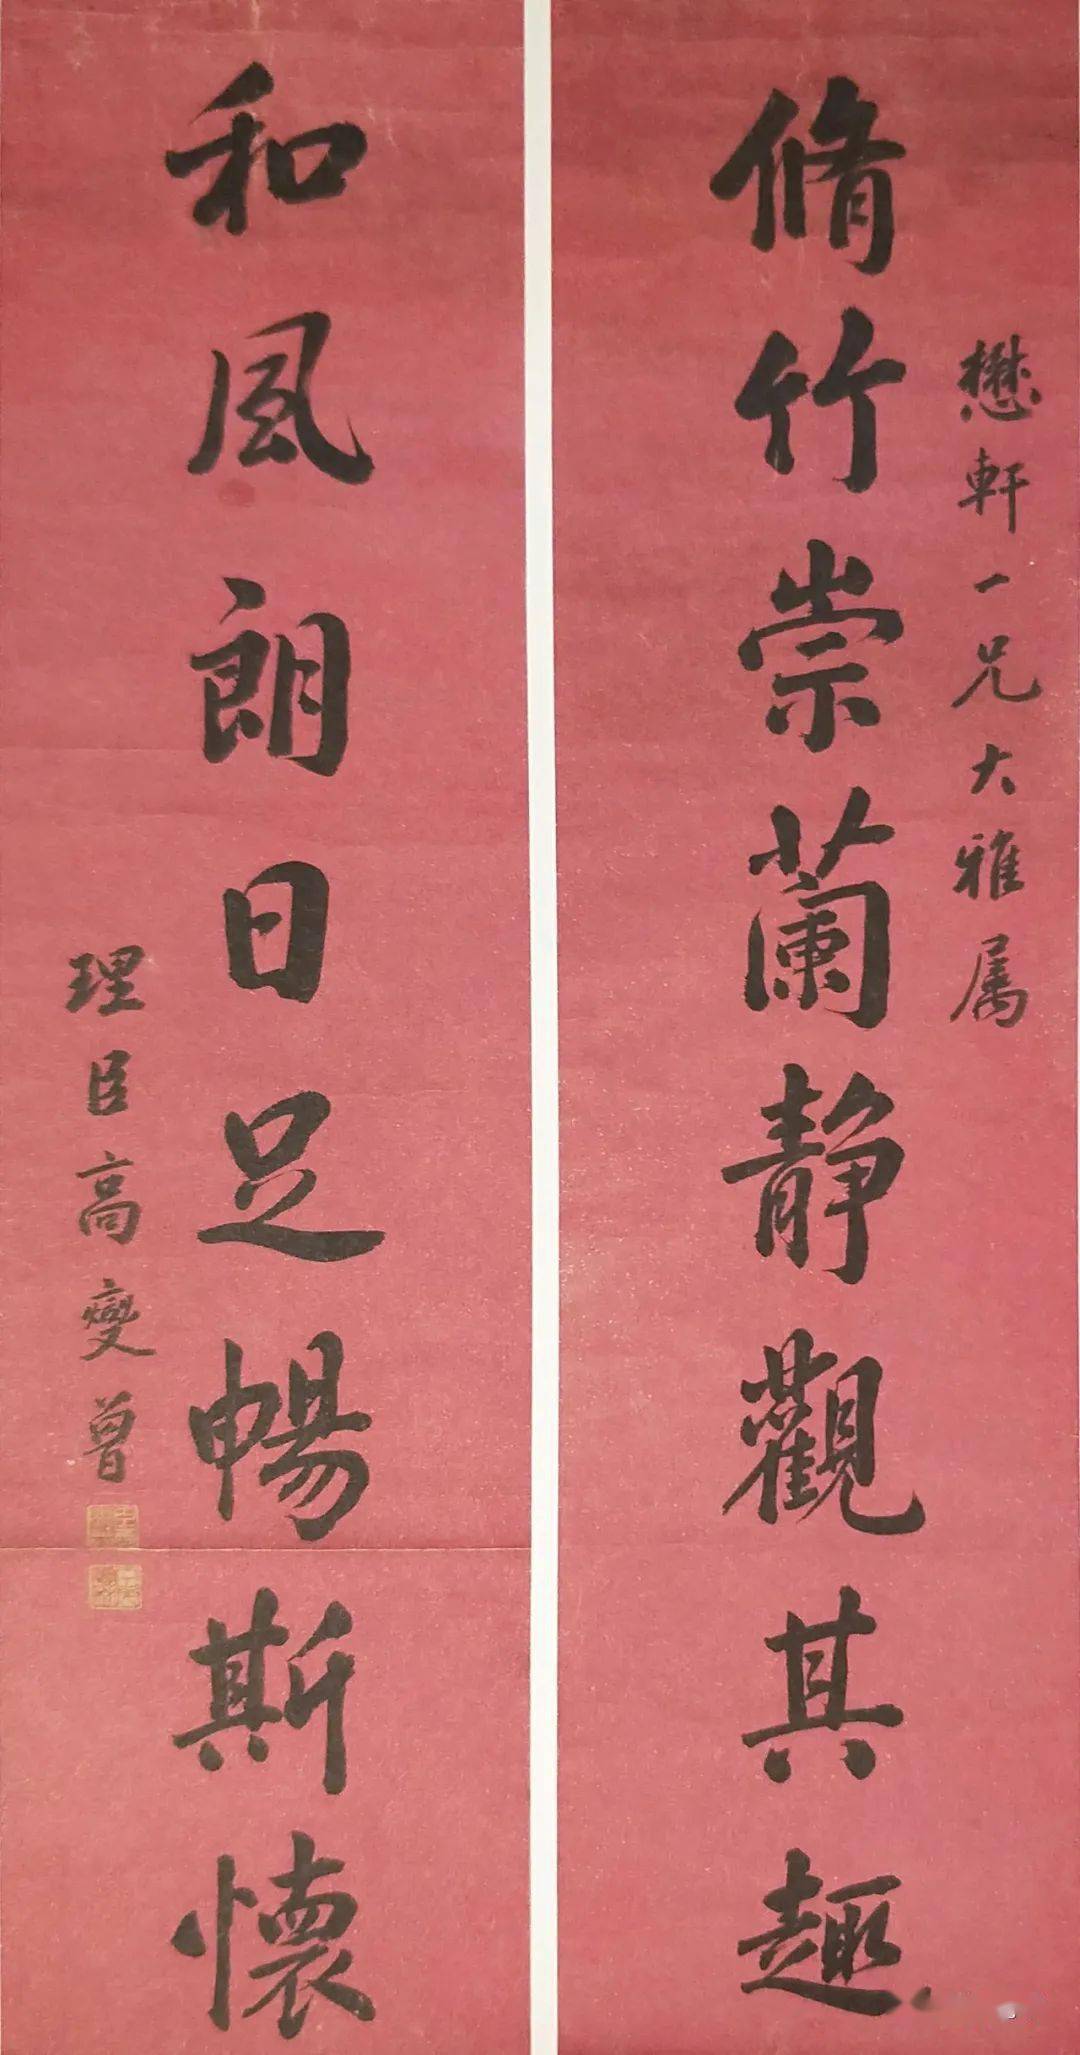 懋軒一兄大雅属
脩竹崇蘭靜觀其趣
和風朗日足暢斯懷
理臣高燮曾